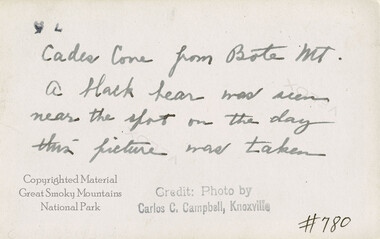 Cades Cove from Bote Mt.
A black bear was seen
near the spot on the day
this picture was taken
Copyrighted Material
Great Smoky Mountains
National Park
Credit: Photo by
Carlos C. Campbell, Knoxville
#780